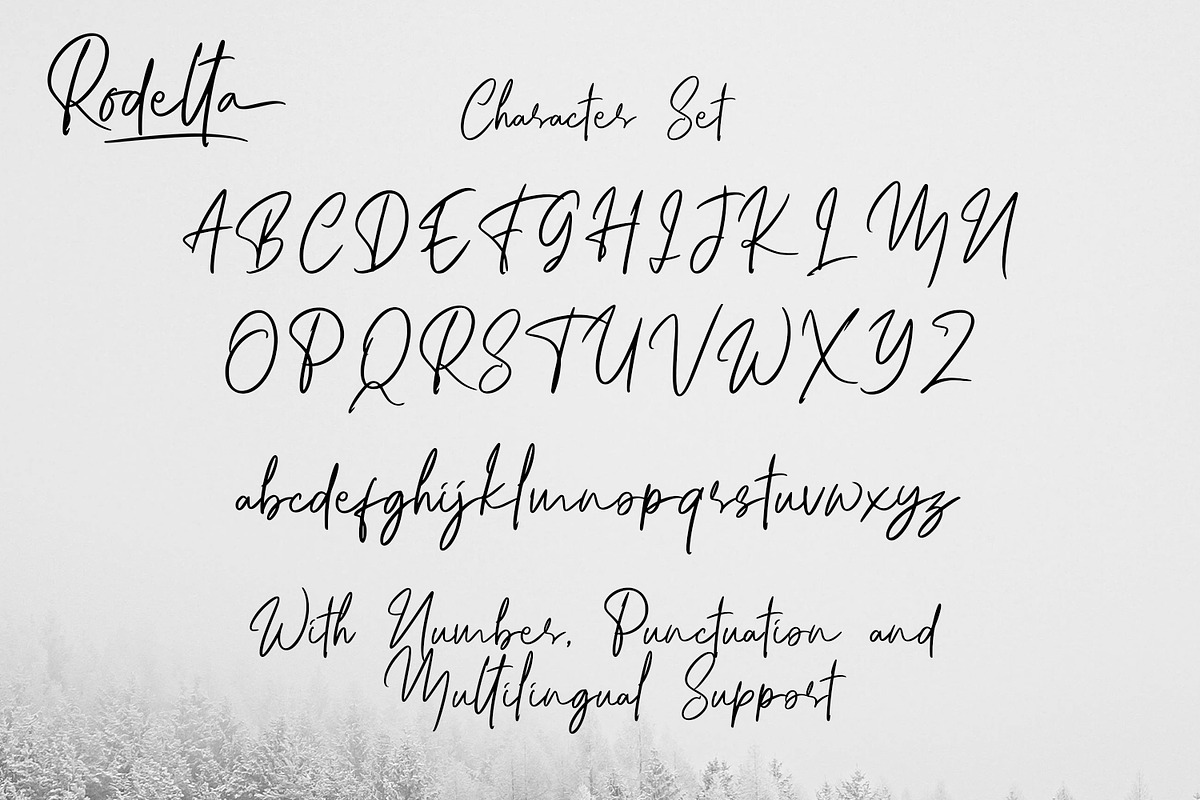 Rodelta
Character Set
ABCDEFGHIJKLMN
OPQRSTUVWXYZ
abcdefghijklmnopqrstuvwxyz
With Number, Punctuation and
Multilingual Support